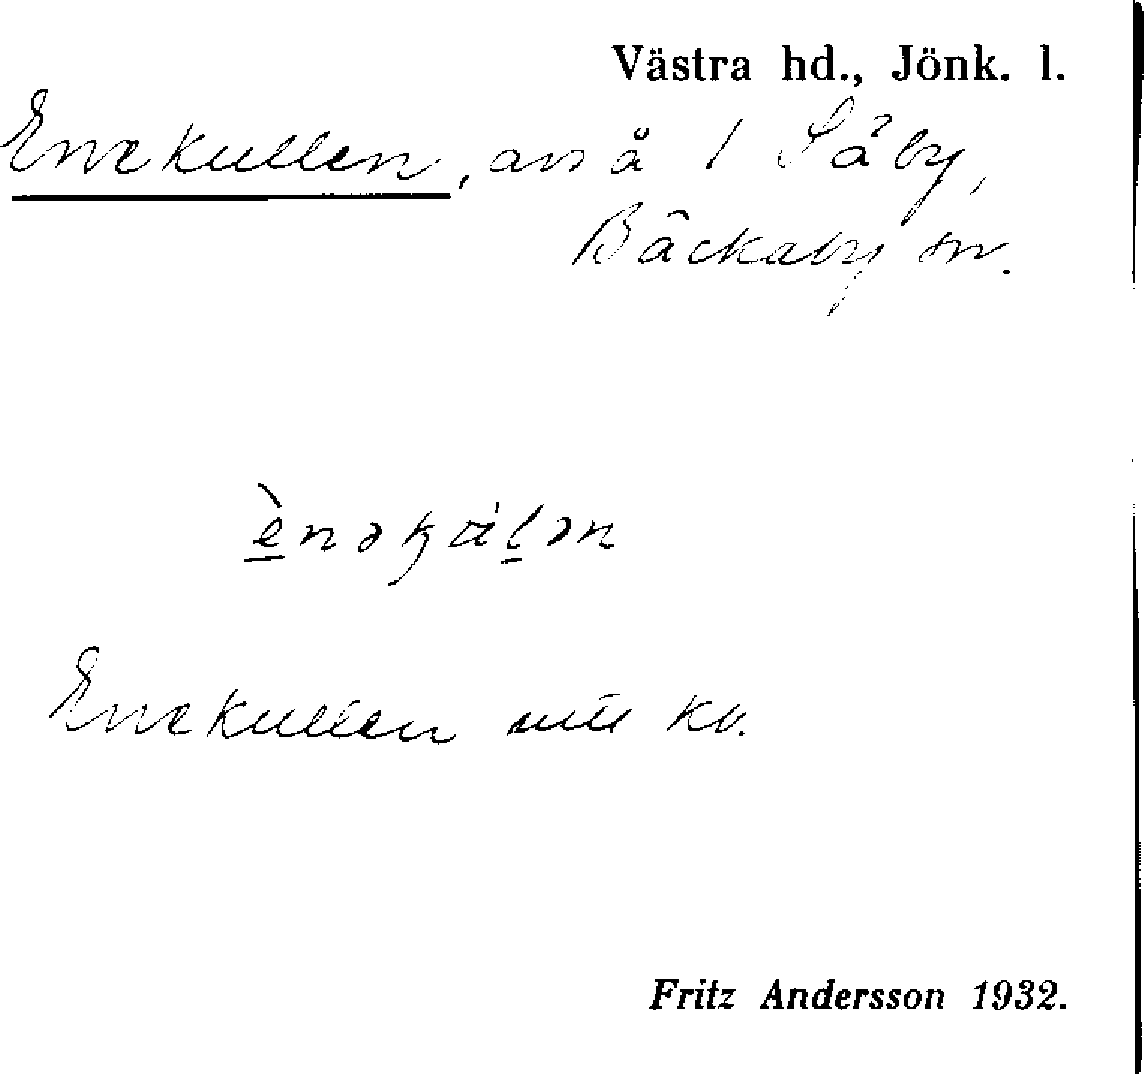 Västra hd., Jönk. l.
Enekullen, avs å 1 Säby,
Bäckaby sn.
Enekullen utt kv.
Fritz Andersson 1932.